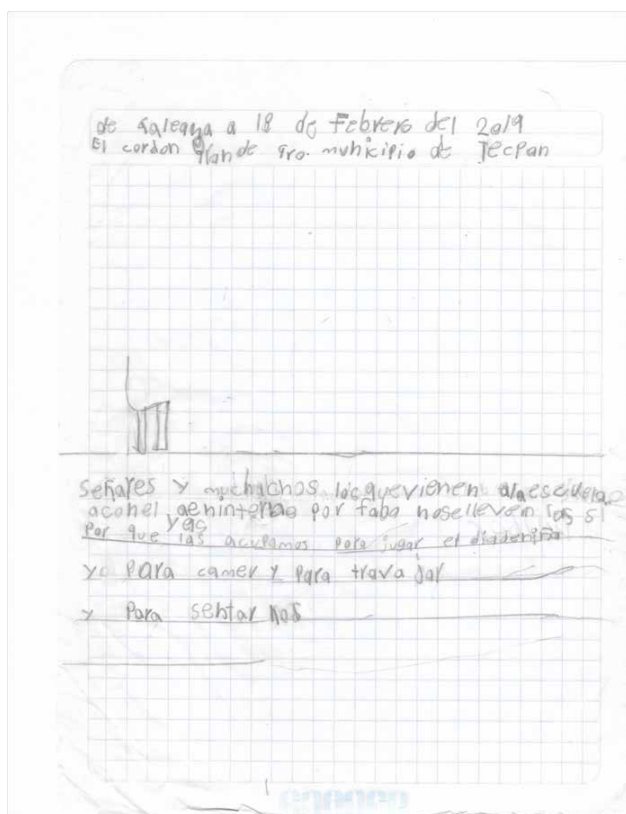 de Galeana a 18 de Febrero del 2019
El cordon grande Gro. municipio de Tecpan
señares y muchachos los que vienen alaescuela
aconel por faba noselleven las si
yas
Por que las acupamos para jugar el diadeniña
yo para camer y para trava jar
y para sentar nos